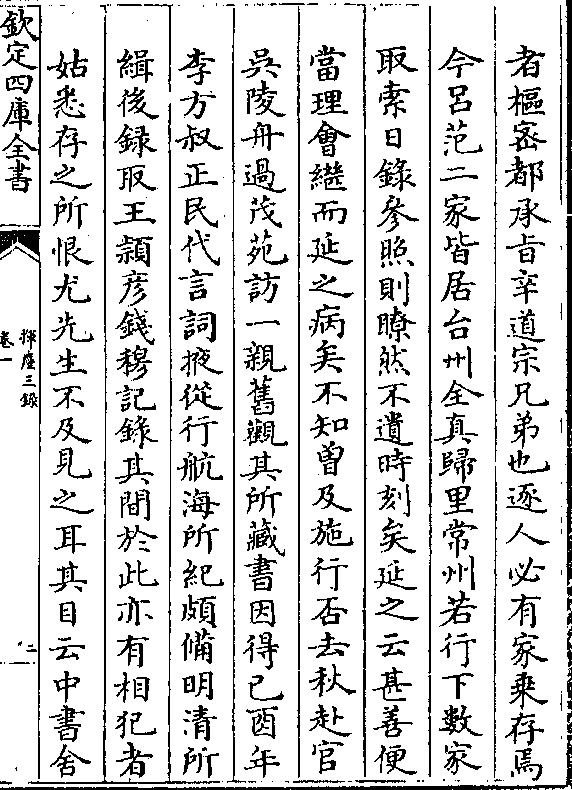 者樞密都承旨辛道宗兄弟也逐人必有家乗存焉
今呂范二家皆居台州全真歸里常州若行下數家
取索日錄參照則瞭然不遺時刻矣延之云甚善便
當理會繼而延之病矣不知曽及施行否去秋赴官
吳陵舟過茂苑訪一親舊觀其所藏書因得己酉年
李方叔正民代言詞掖從行航海所紀頗備明清所
緝後録取王頴彦錢穆記錄其間於此亦有相犯者
姑悉存之所恨尤先生不及見之耳其目云中書舍
欽定四庫全書
揮麈三錄
卷一
二